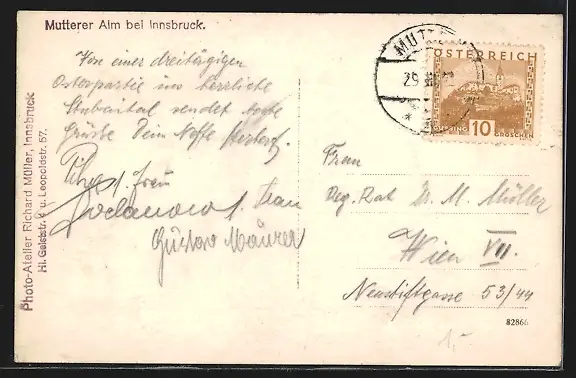 Mutterer Alm bei Innsbruck.
Von einer dreitägigen
Osterpartie ins herrliche
Stubaital sendet
Grüsse Dein Neffe
Frau
Gustav Maurer
Photo-Atelier Richard Müller, Innsbruck
Hl. Geiststr. u. Leopoldstr. 57.
MUTT
29
ÖSTERREICH
10
GROSCHEN
Frau
Reg. Rat Dr. M. Müller
Wien VII.
Neustiftgasse 53/44
82866
1,-